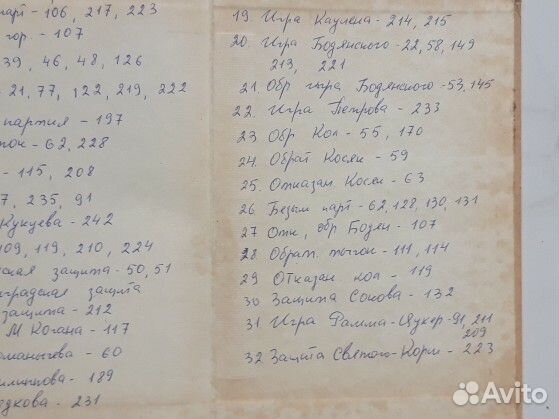 парт - 106, 217, 223
гор. - 107
39, 46, 48, 126
- 21, 77, 122, 219, 222
партия - 197
- 62, 228
- 115, 208
7, 235, 91
Кукуева - 242
109, 119, 210, 224
ская защита - 50, 51
градская защита
защита - 212
М Когана - 117
оманычева - 60
- 189
едкова - 231
19. Игра Каулена - 214, 215
20. Игра Бодянского - 22, 58, 149
213, 221
21. Обр игра Бодянского - 53, 145
22. Игра Петрова - 233
23 Обр Кол - 55, 170
24. Обрат Косяк - 59
25. Отказан. Косяк - 63
26 Безым парт - 62, 128, 130, 131
27 Отк, обр Бодян - 107
28 Обратн. тычок - 111, 114
29 Отказан кол - 119
30 Защита Сокова - 132
31 Игра Рамма-Цукер - 91, 211
209
32. Защита Святого-Корм - 223
Avito